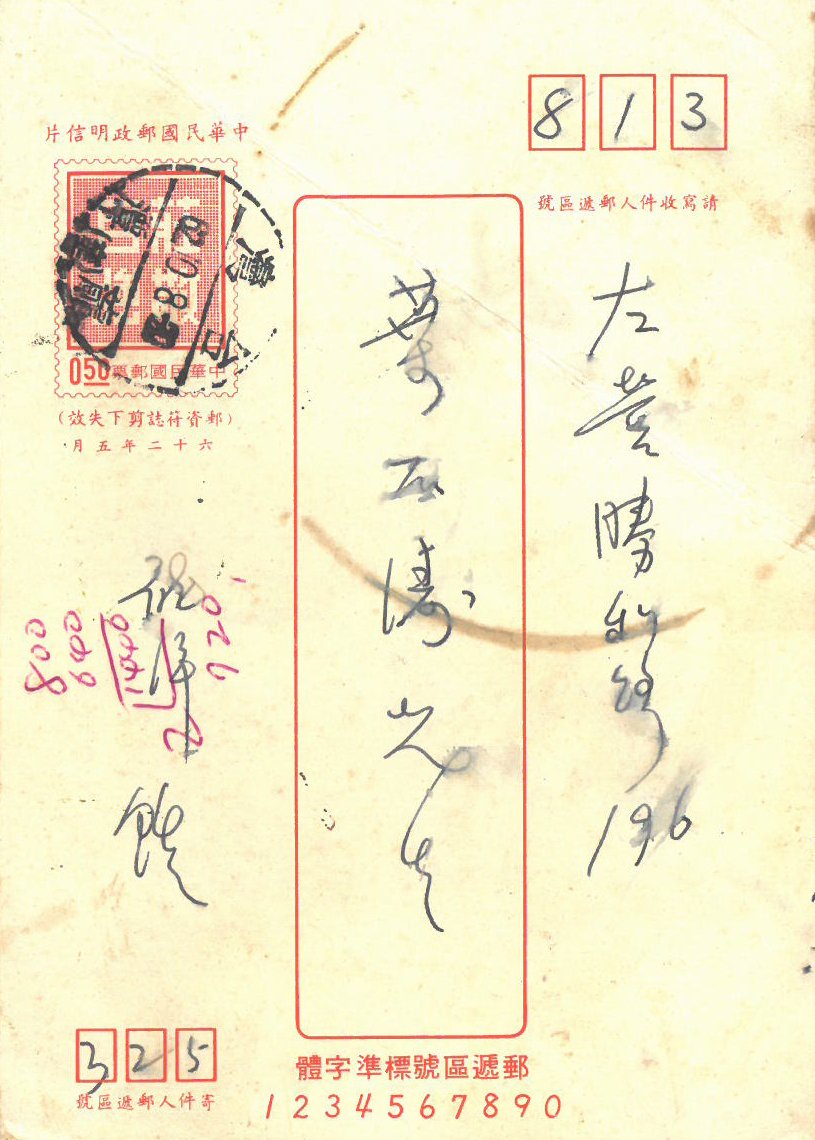 中華民國郵政明信片
中華民國郵票 050
(郵資符誌剪下失效)
六十二年五月
8 1 3
請寫收件人郵遞區號
左營勝利路196
葉石濤先生
800
640
1440
2
720
3 2 5
寄件人郵遞區號
郵遞區號標準字體
1 2 3 4 5 6 7 8 9 0